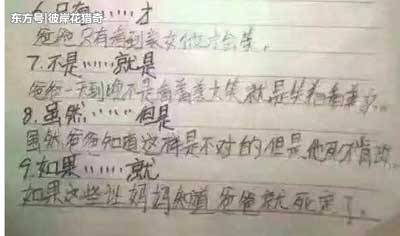 东方号|彼岸花猎奇
6.只有……才
爸爸只有看到美女他才会笑。
7.不是……就是
爸爸一天到晚不是看着美女笑就是笑着看美女。
8.虽然……但是
虽然爸爸知道这样是不对的但是他死不肯改。
9.如果……就
如果这些让妈妈知道爸爸就死定了。